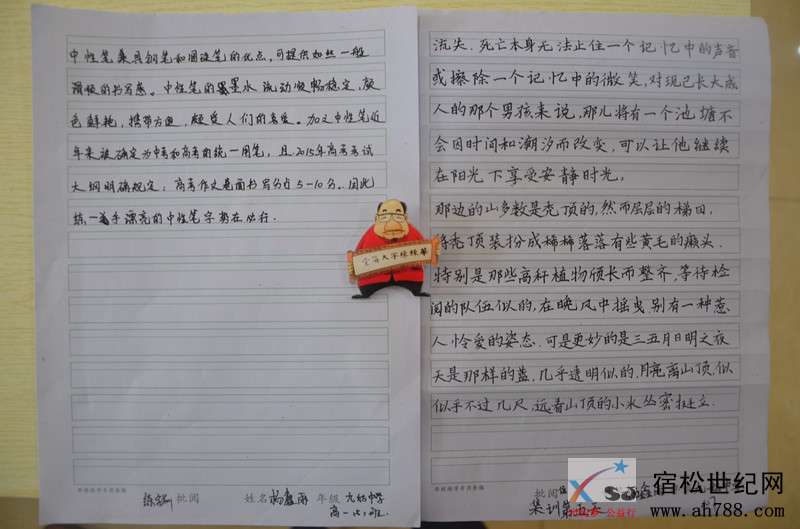 中性笔兼具钢笔和圆珠笔的优点,可提供如丝一般
滑顺的书写感。中性笔的墨水流动顺畅稳定,颜
色鲜艳,携带方便,颇受人们的喜爱。加之中性笔近
年来被确定为中考和高考的统一用笔,且2015年高考考试
大纲明确规定:高考作文卷面书写分占5-10分。因此
练一手漂亮的中性笔字势在必行.
批阅
姓名
年级 九
高一(1)班
流失.死亡本身无法止住一个记忆中的声音
或擦除一个记忆中的微笑,对现已长大成
人的那个男孩来说,那儿将有一个池塘不
会因时间和潮汐而改变,可以让他继续
在阳光下享受安静时光。
那边的山多数是秃顶的,然而层层的梯田,
将秃顶装扮成稀稀落落有些黄毛的癞头.
特别是那些高秆植物颀长而整齐,等待检
阅的队伍似的,在晚风中摇曳别有一种惹
人怜爱的姿态.可是更妙的是三五月日明之夜
天是那样的蓝,几乎透明似的,月亮离山顶.似
似乎不过几尺.远看山顶的小水丛密挺立.
批阅
集训第五天
宿松世纪网
www.ah788.com